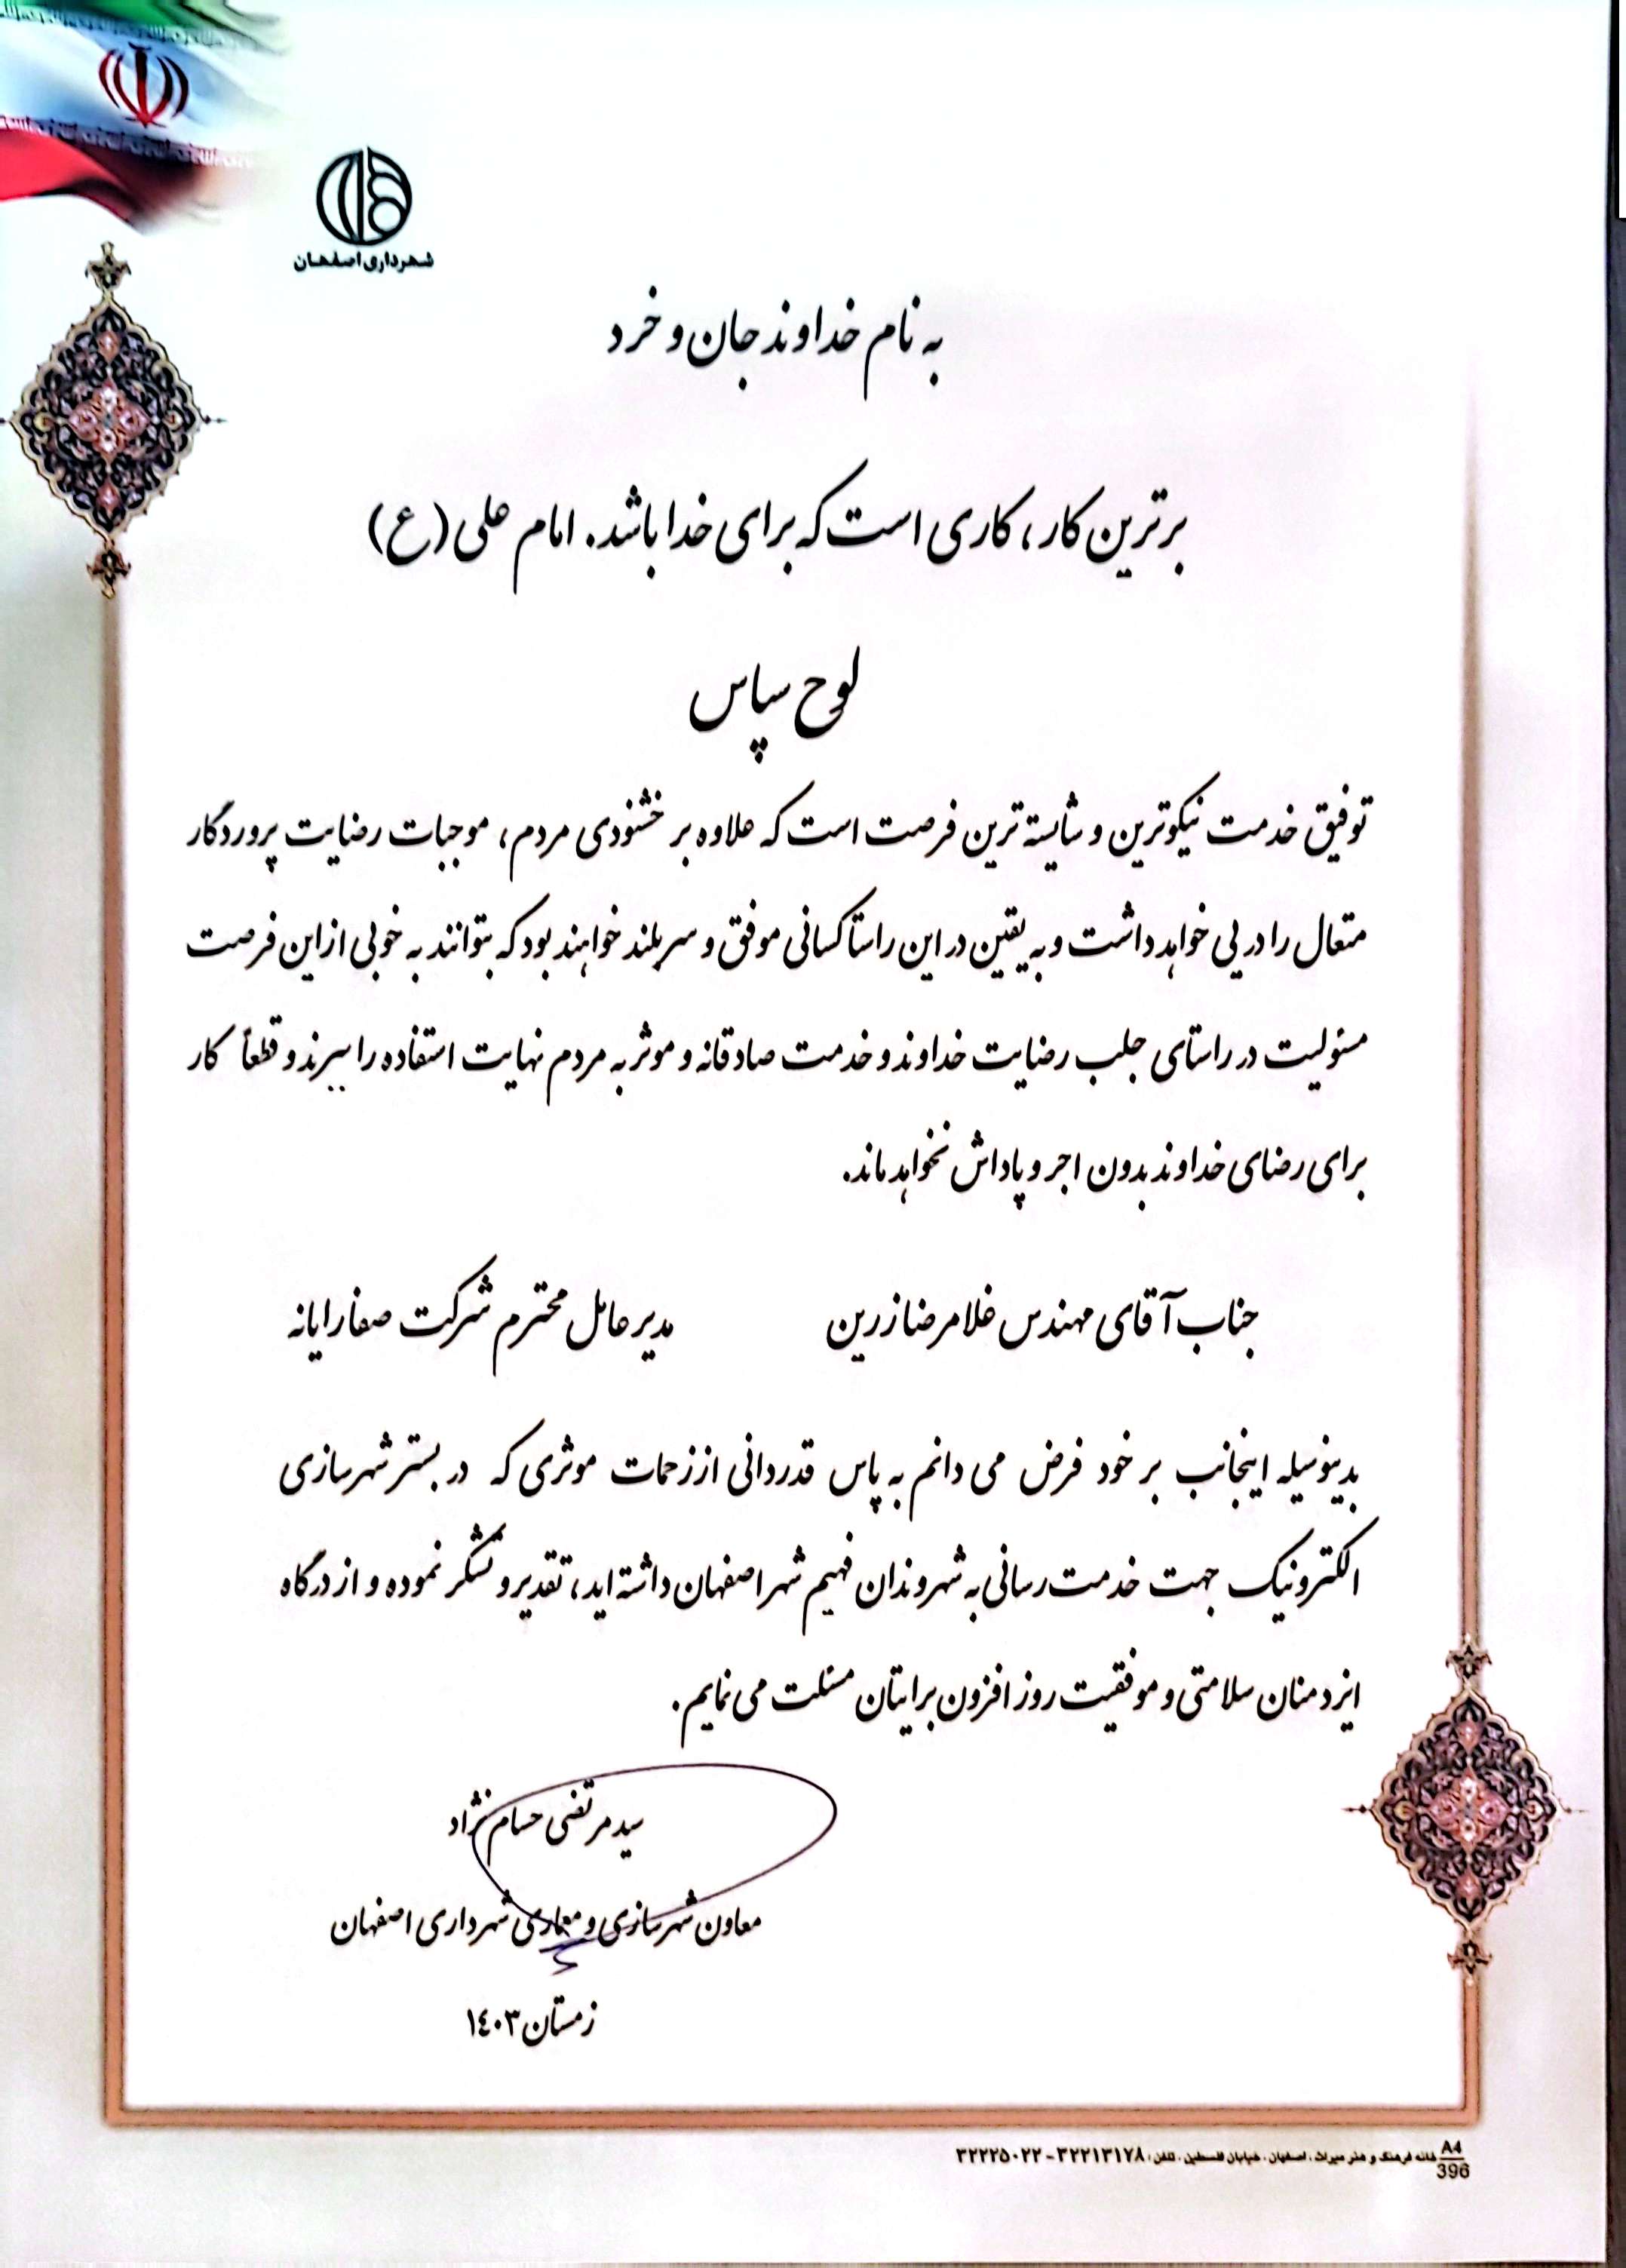 شهرداری اصفهان
به نام خداوند جان و خرد
برترین کار، کاری است که برای خدا باشد. امام علی (ع)
لوح سپاس
توفیق خدمت نیکوترین و شایسته ترین فرصت است که علاوه بر خشنودی مردم، موجبات رضایت پروردگار
متعال را در پی خواهد داشت و به یقین در این راستا کسانی موفق و سربلند خواهند بود که بتوانند به خوبی از این فرصت
مسئولیت در راستای جلب رضایت خداوند و خدمت صادقانه و موثر به مردم نهایت استفاده را ببرند و قطعاً کار
برای رضای خداوند بدون اجر و پاداش نخواهد ماند.
جناب آقای مهندس غلامرضا زرین
مدیرعامل محترم شرکت صفارایانه
بدینوسیله اینجانب بر خود فرض می دانم به پاس قدردانی از زحمات موثری که در بستر شهرسازی
الکترونیک جهت خدمت رسانی به شهروندان فهیم شهر اصفهان داشته اید، تقدیر و تشکر نموده و از درگاه
ایزد منان سلامتی و موفقیت روز افزون برایتان مسئلت می نمایم.
سید مرتضی حسام نژاد
معاون شهرسازی و معماری شهرداری اصفهان
زمستان ۱٤۰۳
A4
396
خانه فرهنگ و هنر میراث، اصفهان، خیابان فلسطین، تلفن: ۳۲۲۱۳۱۷۸-۳۲۲۲۵۰۲۲